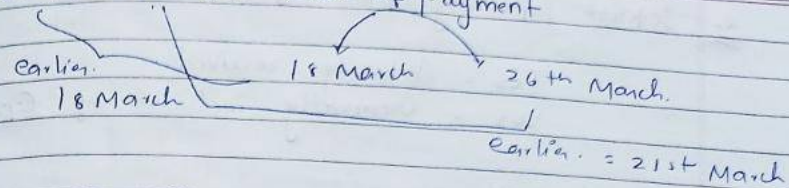 Payment
earlier. 18 March 26th March.
18 March
earlier. = 21st March